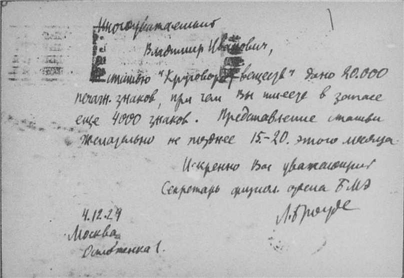 Многоуважаемый
Владимир Иванович,
статью "Круговорот веществ" дано 20.000
печатн. знаков, при чем Вы имеете в запасе
еще 4000 знаков. Представление статьи
желательно не позднее 15-20. этого месяца
Искренно Вас уважающий
Секретарь физиол. отдела БМЭ
4.12.27
Москва